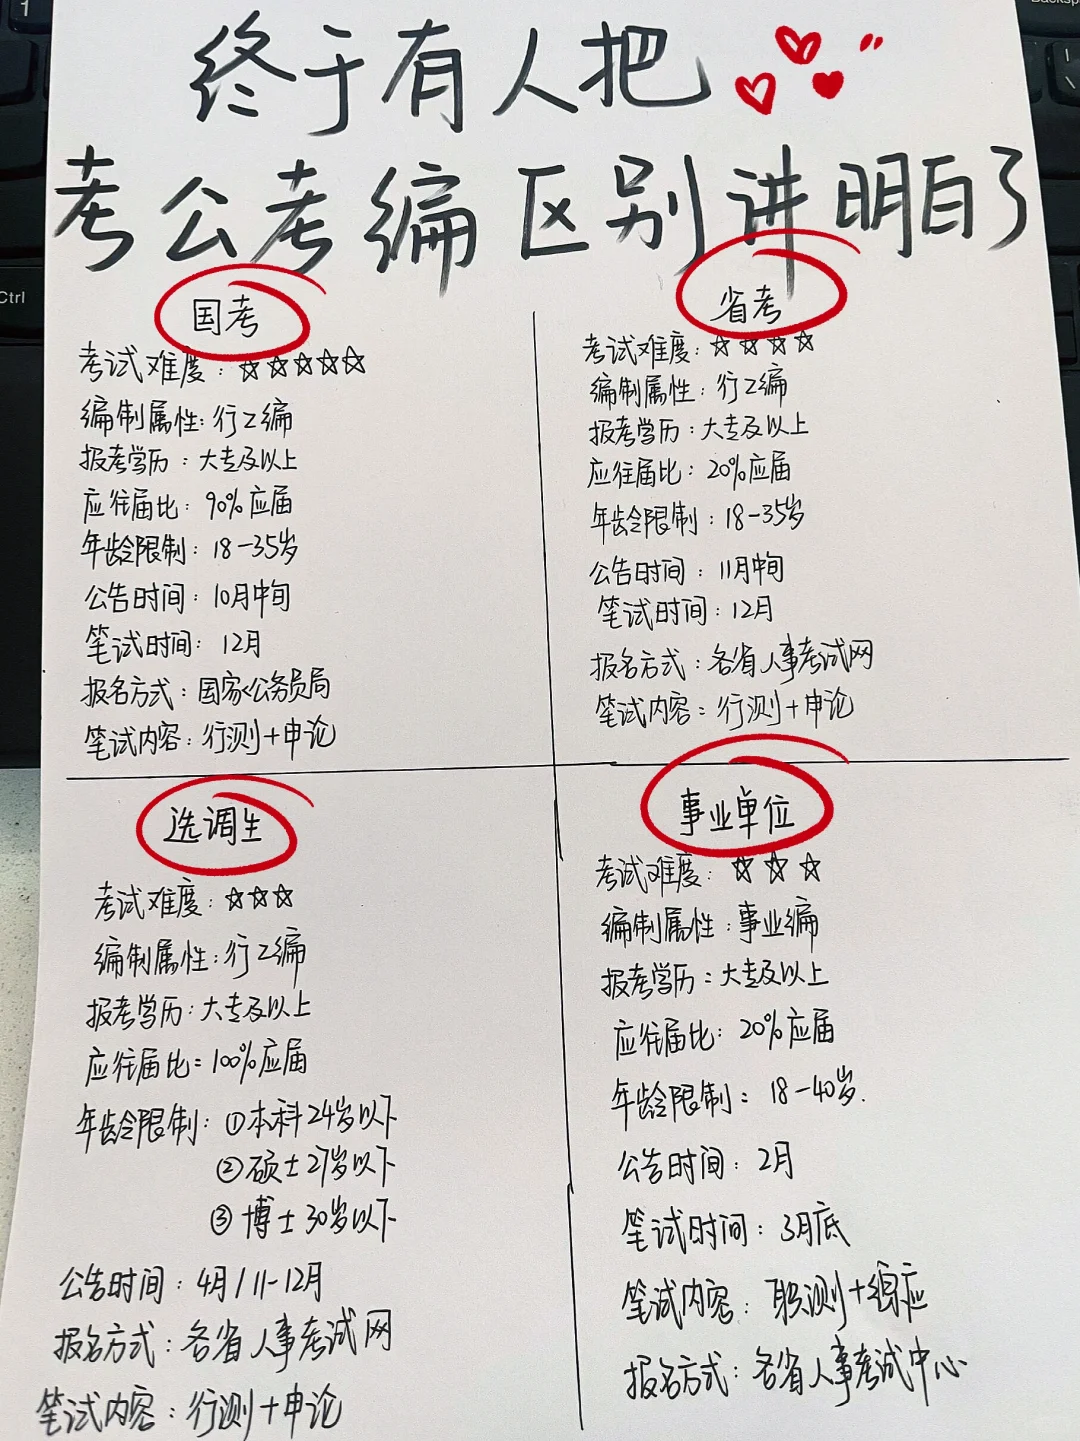 终于有人把
考公考编区别讲明白了
国考
考试难度：☆☆☆☆☆
编制属性：行工编
报考学历：大专及以上
应往届比：90%应届
年龄限制：18-35岁
公告时间：10月中旬
笔试时间：12月
报名方式：国家公务员局
笔试内容：行测+申论
省考
考试难度：☆☆☆☆
编制属性：行工编
报考学历：大专及以上
应往届比：20%应届
年龄限制：18-35岁
公告时间：11月中旬
笔试时间：12月
报名方式：各省人事考试网
笔试内容：行测+申论
选调生
考试难度：☆☆☆
编制属性：行工编
报考学历：大专及以上
应往届比：100%应届
年龄限制：①本科24岁以下
②硕士27岁以下
③博士30岁以下
公告时间：4月/11-12月
报名方式：各省人事考试网
笔试内容：行测+申论
事业单位
考试难度：☆☆☆
编制属性：事业编
报考学历：大专及以上
应往届比：20%应届
年龄限制：18-40岁.
公告时间：2月
笔试时间：3月底
笔试内容：职测+综应
报名方式：各省人事考试中心
Ctrl
1